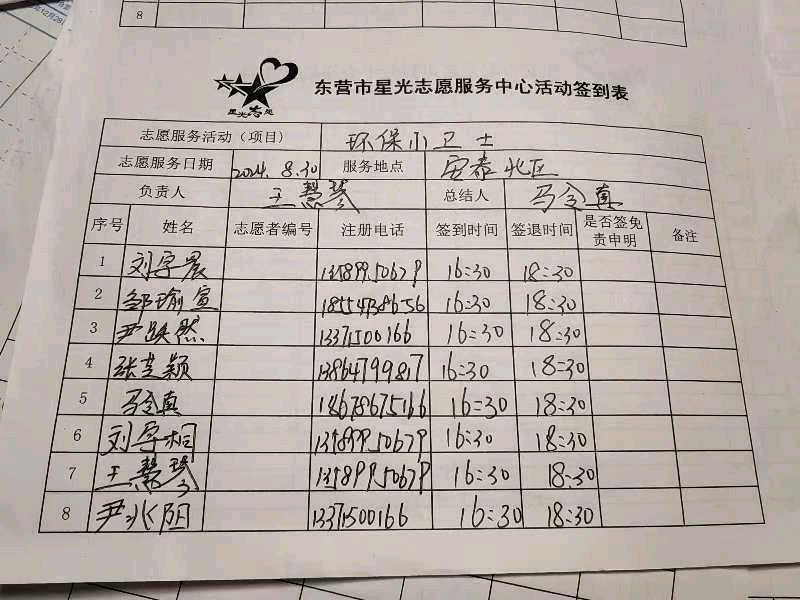 8
东营市星光志愿服务中心活动签到表
志愿服务活动（项目） 环保小卫士
志愿服务日期 2024.8.30 服务地点 安泰北区
负责人 王慧琴 总结人 马令真
序号 姓名 志愿者编号 注册电话 签到时间 签退时间 是否签免责申明 备注
1 刘宇晨 13589950679 16:30 18:30
2 邹瑜宣 18554738656 16:30 18:30
3 尹 然 13371500166 16:30 18:30
4 张 颖 13864799817 16:30 18:30
5 马令真 18678675166 16:30 18:30
6 刘宇桐 13589950679 16:30 18:30
7 王慧琴 13589950679 16:30 18:30
8 尹 阳 13371500166 16:30 18:30